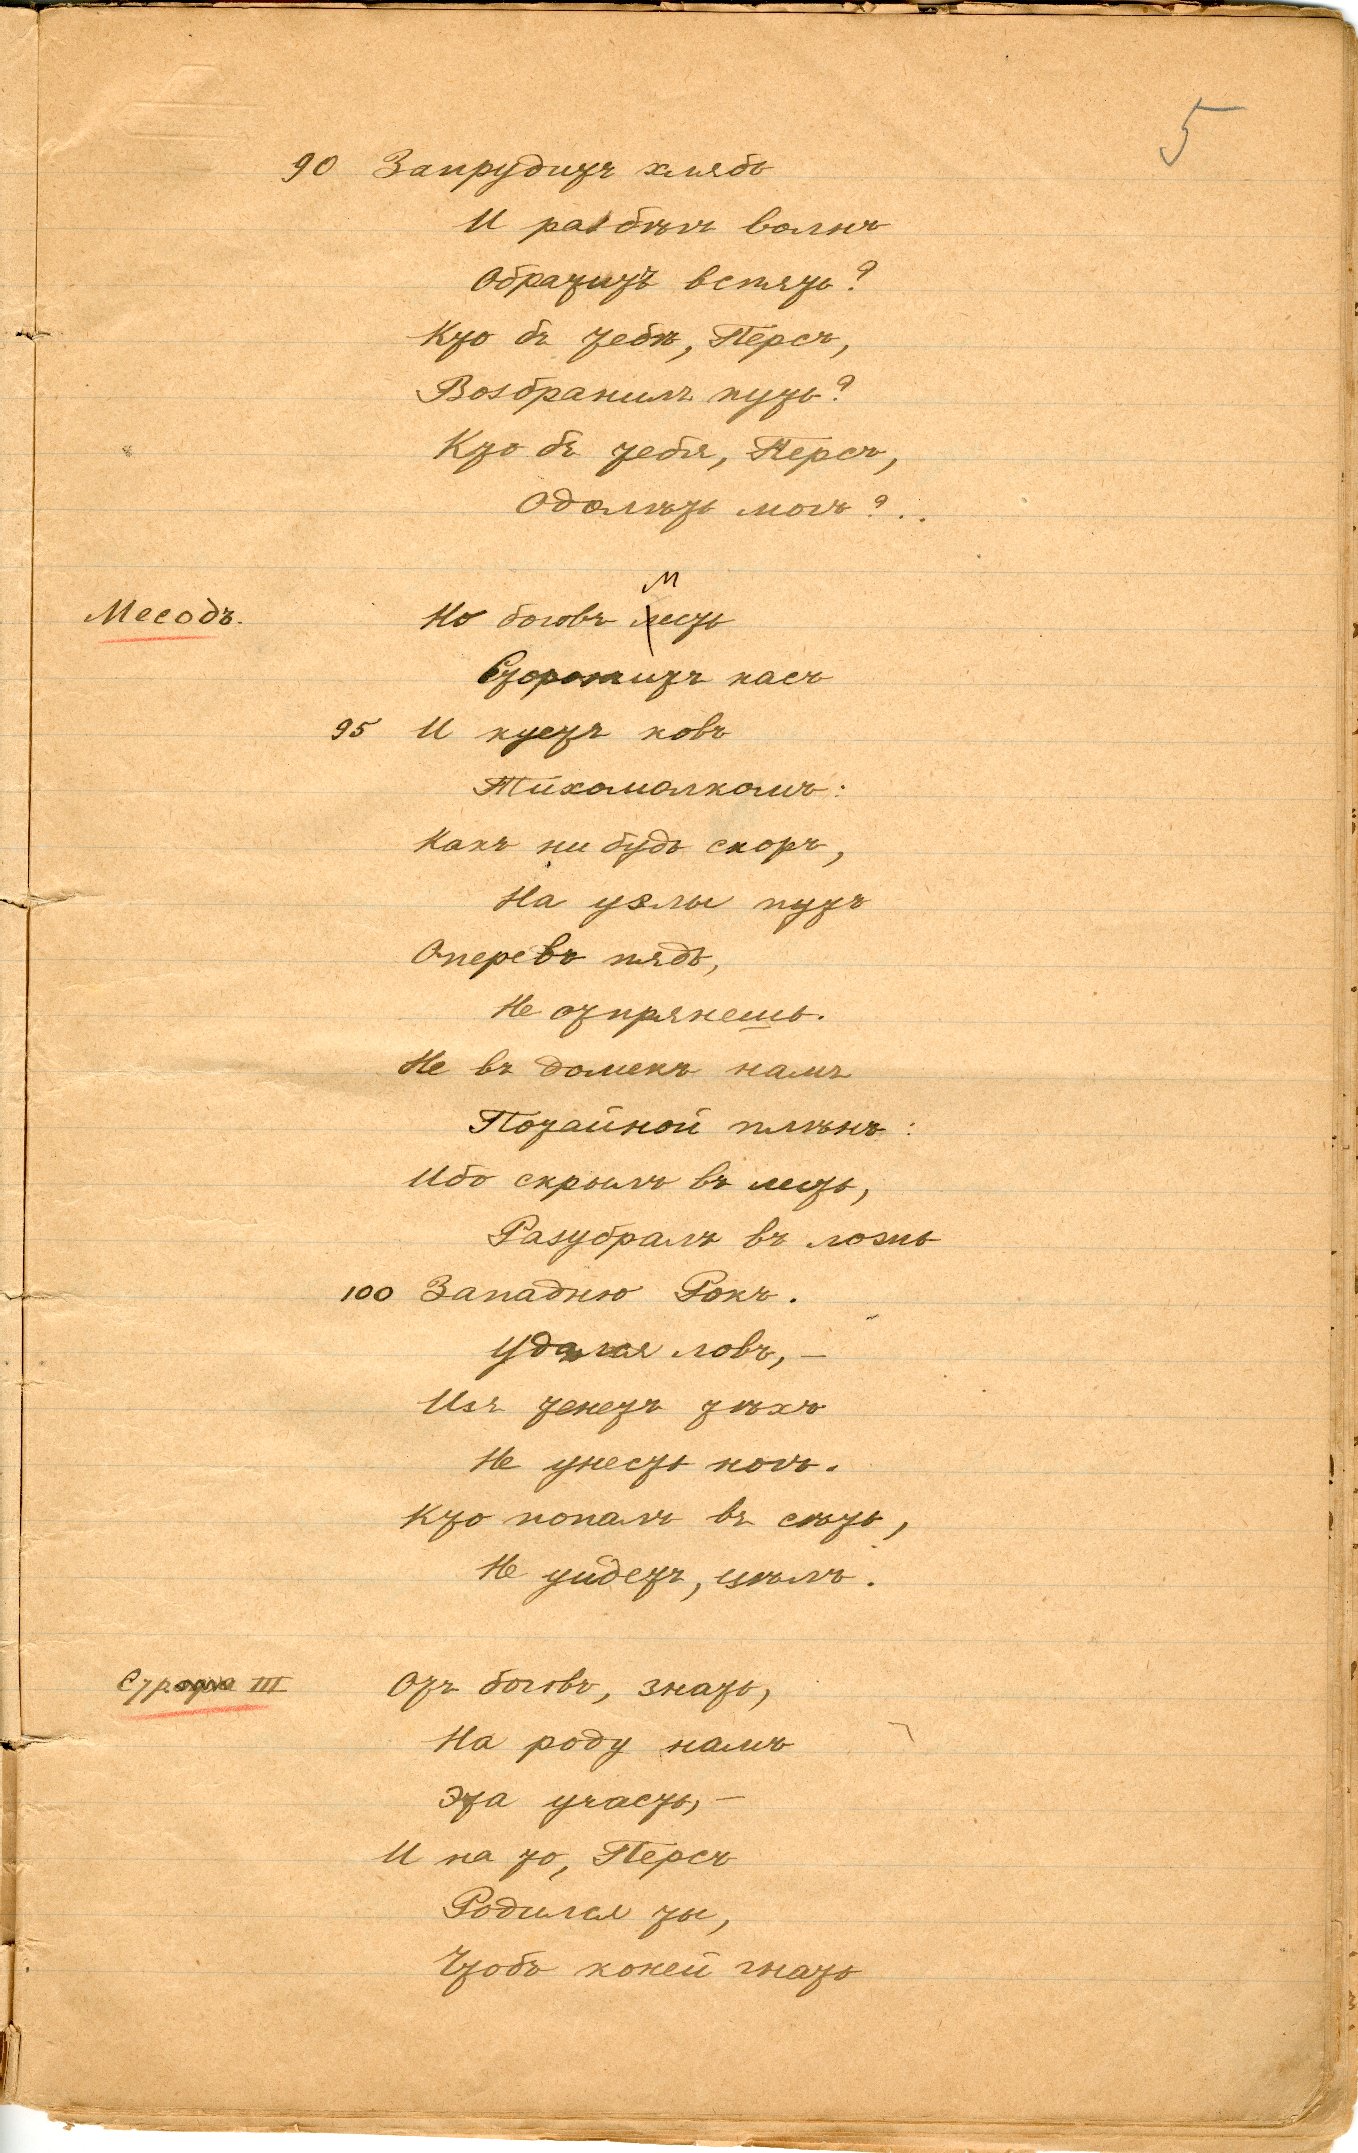 5
90 Запрудитъ хлябь
И разбѣгъ волнъ
Обратитъ вспять?
Кто бъ тебѣ, Персъ,
Возбранилъ путь?
Кто бъ тебя, Персъ,
Одолѣть могъ?..
м
Месодъ. Но боговъ лесть
Сторожитъ насъ
95 И куетъ ковъ
Тихомолкомъ:
Какъ ни будь скоръ,
На узлы путъ
Оперевъ пядь,
Не отпрянешь.
Не въ домекъ намъ
Потайной плѣнъ:
Ибо скрылъ въ лесть,
Разубралъ въ ложь
100 Западню Рокъ.
Удался ловъ, —
Изъ тенетъ тѣхъ
Не унесть ногъ.
Кто попалъ въ сѣть,
Не уйдетъ, цѣлъ.
Строфа III Отъ боговъ, знать,
На роду намъ
Эта участь, —
И на то, Персъ
Родился ты,
Чтобъ коней гнать